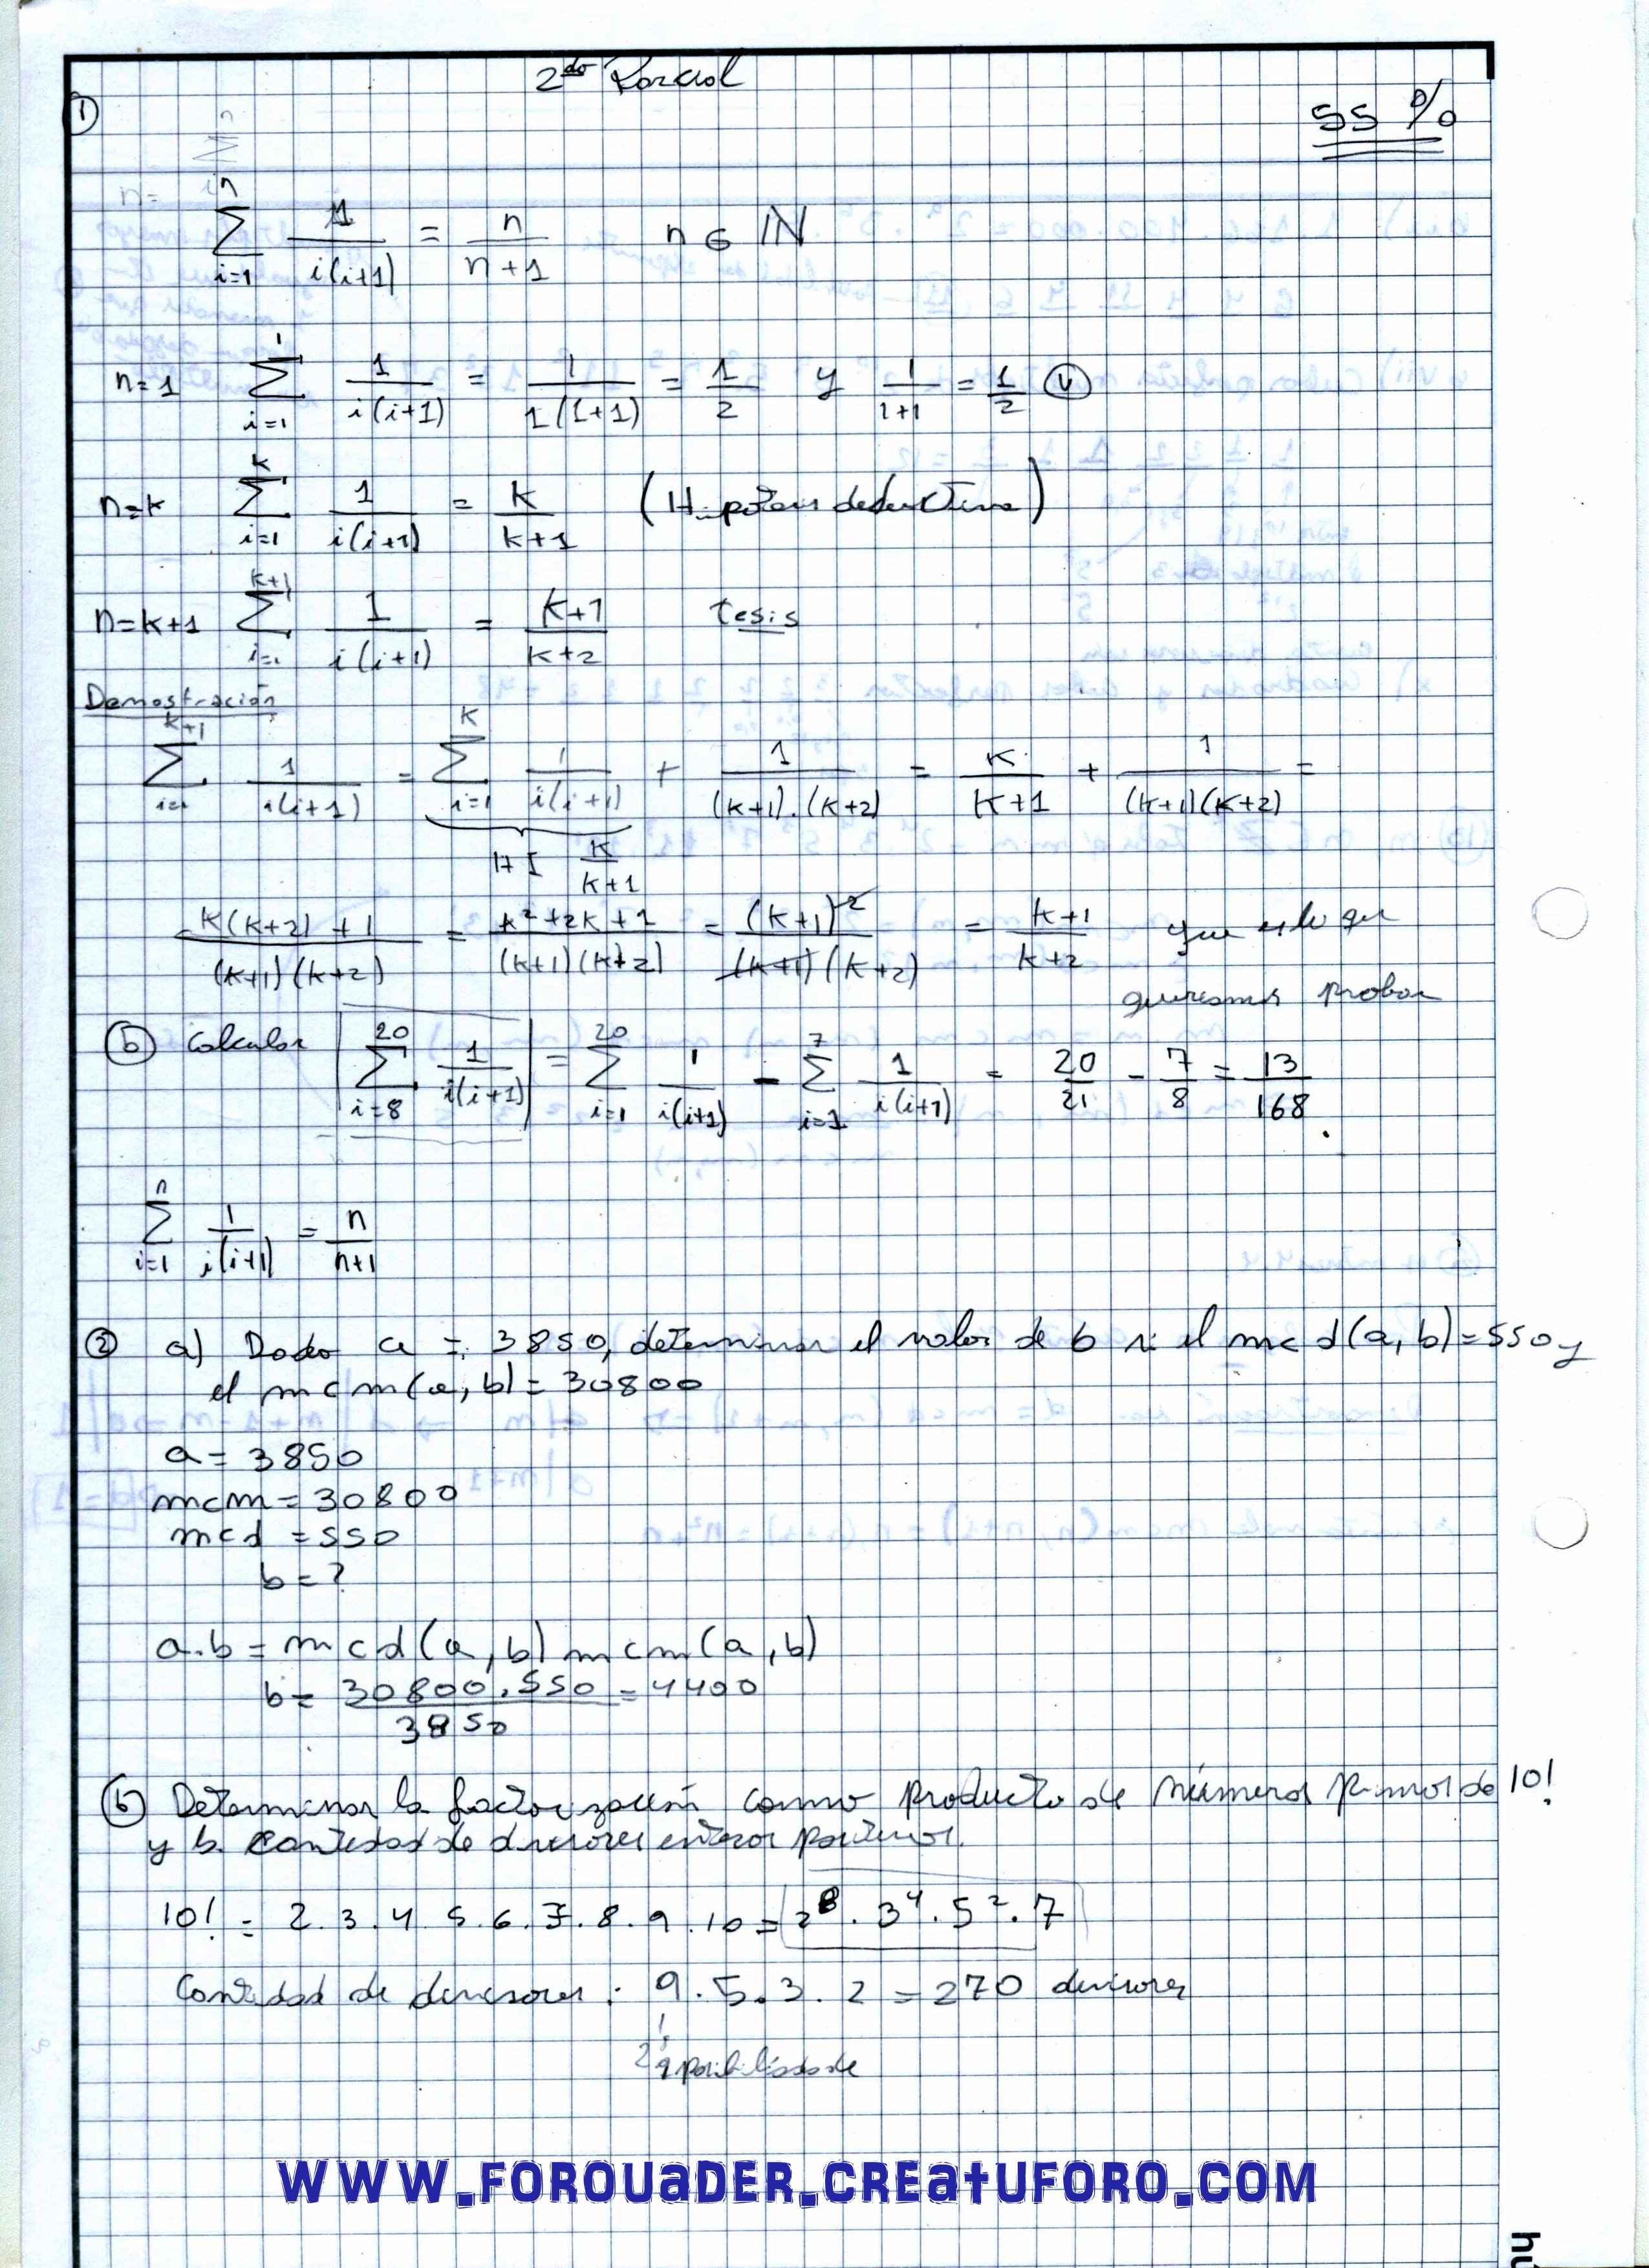 2do Parcial
①
55 %
n=
∑_{i=1}^{n} 1/(i(i+1)) = n/(n+1)   n ∈ ℕ
n=1   ∑_{i=1}^{1} 1/(i(i+1)) = 1/(1(1+1)) = 1/2   y   1/(1+1) = 1/2 Ⓥ
n=k   ∑_{i=1}^{k} 1/(i(i+1)) = k/(k+1)
n=k+1   ∑_{i=1}^{k+1} 1/(i(i+1)) = (k+1)/(k+2)   tesis
Demostración
∑_{i=1}^{k+1} 1/(i(i+1)) = ∑_{i=1}^{k} 1/(i(i+1)) + 1/((k+1).(k+2)) = k/(k+1) + 1/((k+1)(k+2)) =
HI   k/(k+1)
(k(k+2)+1)/((k+1)(k+2)) = (k²+2k+1)/((k+1)(k+2)) = (k+1)²/((k+1)(k+2)) = (k+1)/(k+2)   que es lo que
queremos probar
ⓑ Calcular ∑_{i=8}^{20} 1/(i(i+1)) = ∑_{i=1}^{20} 1/(i(i+1)) - ∑_{i=1}^{7} 1/(i(i+1)) = 20/21 - 7/8 = 13/168
∑_{i=1}^{n} 1/(i(i+1)) = n/(n+1)
② a) Dado a = 3850, determinar el valor de b si el mcd(a,b)=550 y
el mcm(a,b)=30800
a=3850
mcm=30800
mcd=550
b=?
a.b = mcd(a,b) mcm(a,b)
b = (30800.550)/3850 = 4400
ⓑ Determinar la factorización como producto de números primos de 10!
y la cantidad de divisores enteros positivos.
10! = 2.3.4.5.6.7.8.9.10 = 2⁸.3⁴.5².7
Cantidad de divisores: 9.5.3.2 = 270 divisores
WWW.FOROUADER.CREATUFORO.COM